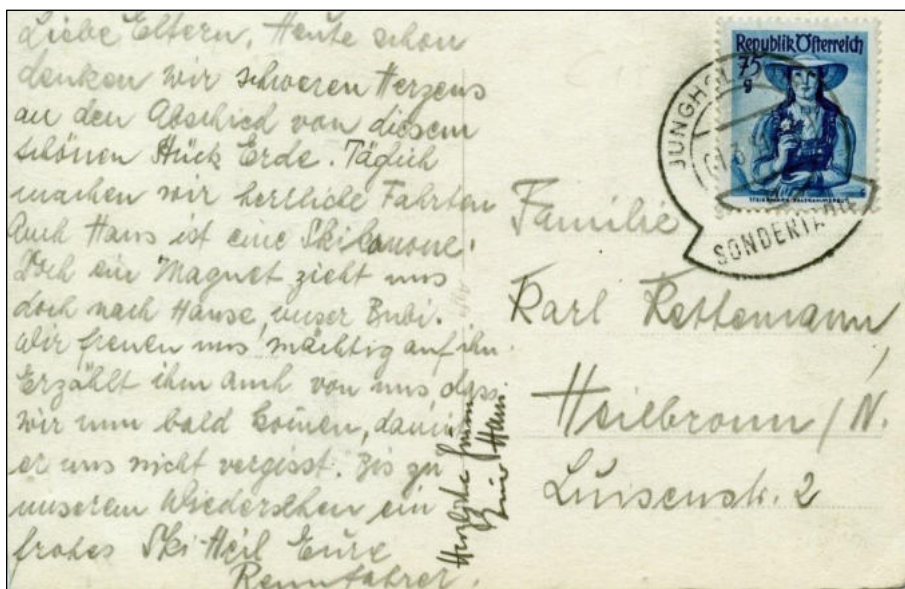 Liebe Eltern, Heute schon
denken wir schweren Herzens
an den Abschied von diesem
schönen Stück Erde. Täglich
machen wir herrliche Fahrten
Auch Hans ist eine Skikanone.
Doch ein Magnet zieht uns
doch nach Hause, unser Bubi.
Wir freuen uns mächtig auf ihn.
Erzählt ihm auch von uns, dass
wir nun bald komen, damit
er uns nicht vergisst. Bis zu
unserem Wiedersehen ein
frohes Ski-Heil Eure
Rennfahrer.
Herzliche
Euer Hans
Republik Österreich
75
g
JUNGHOL
SONDERTA
Familie
Karl Kettemann,
Heilbronn/N.
Luisenstr. 2